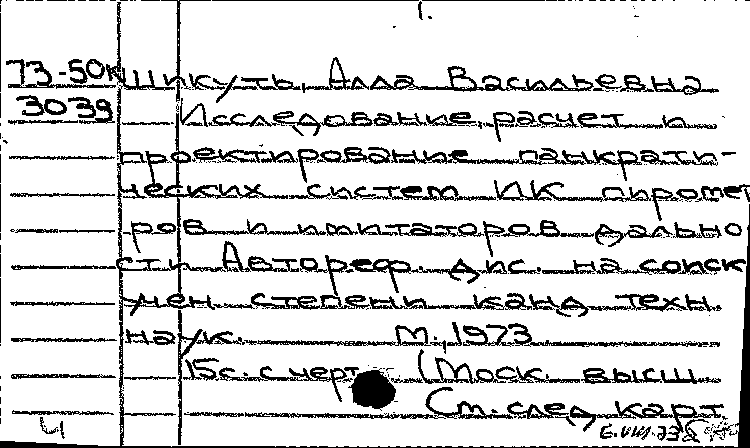 1.
73-50к Шикуть, Алла Васильевна
3039 Исследование, расчет и
проектирование панкрати-
ческих систем ИК пиромет
ров и имитаторов дально
сти Автореф. дис. на соиск
учен. степени канд техн.
наук. М., 1973
15с. с черт. (Моск. высш.
См. след. карт
4